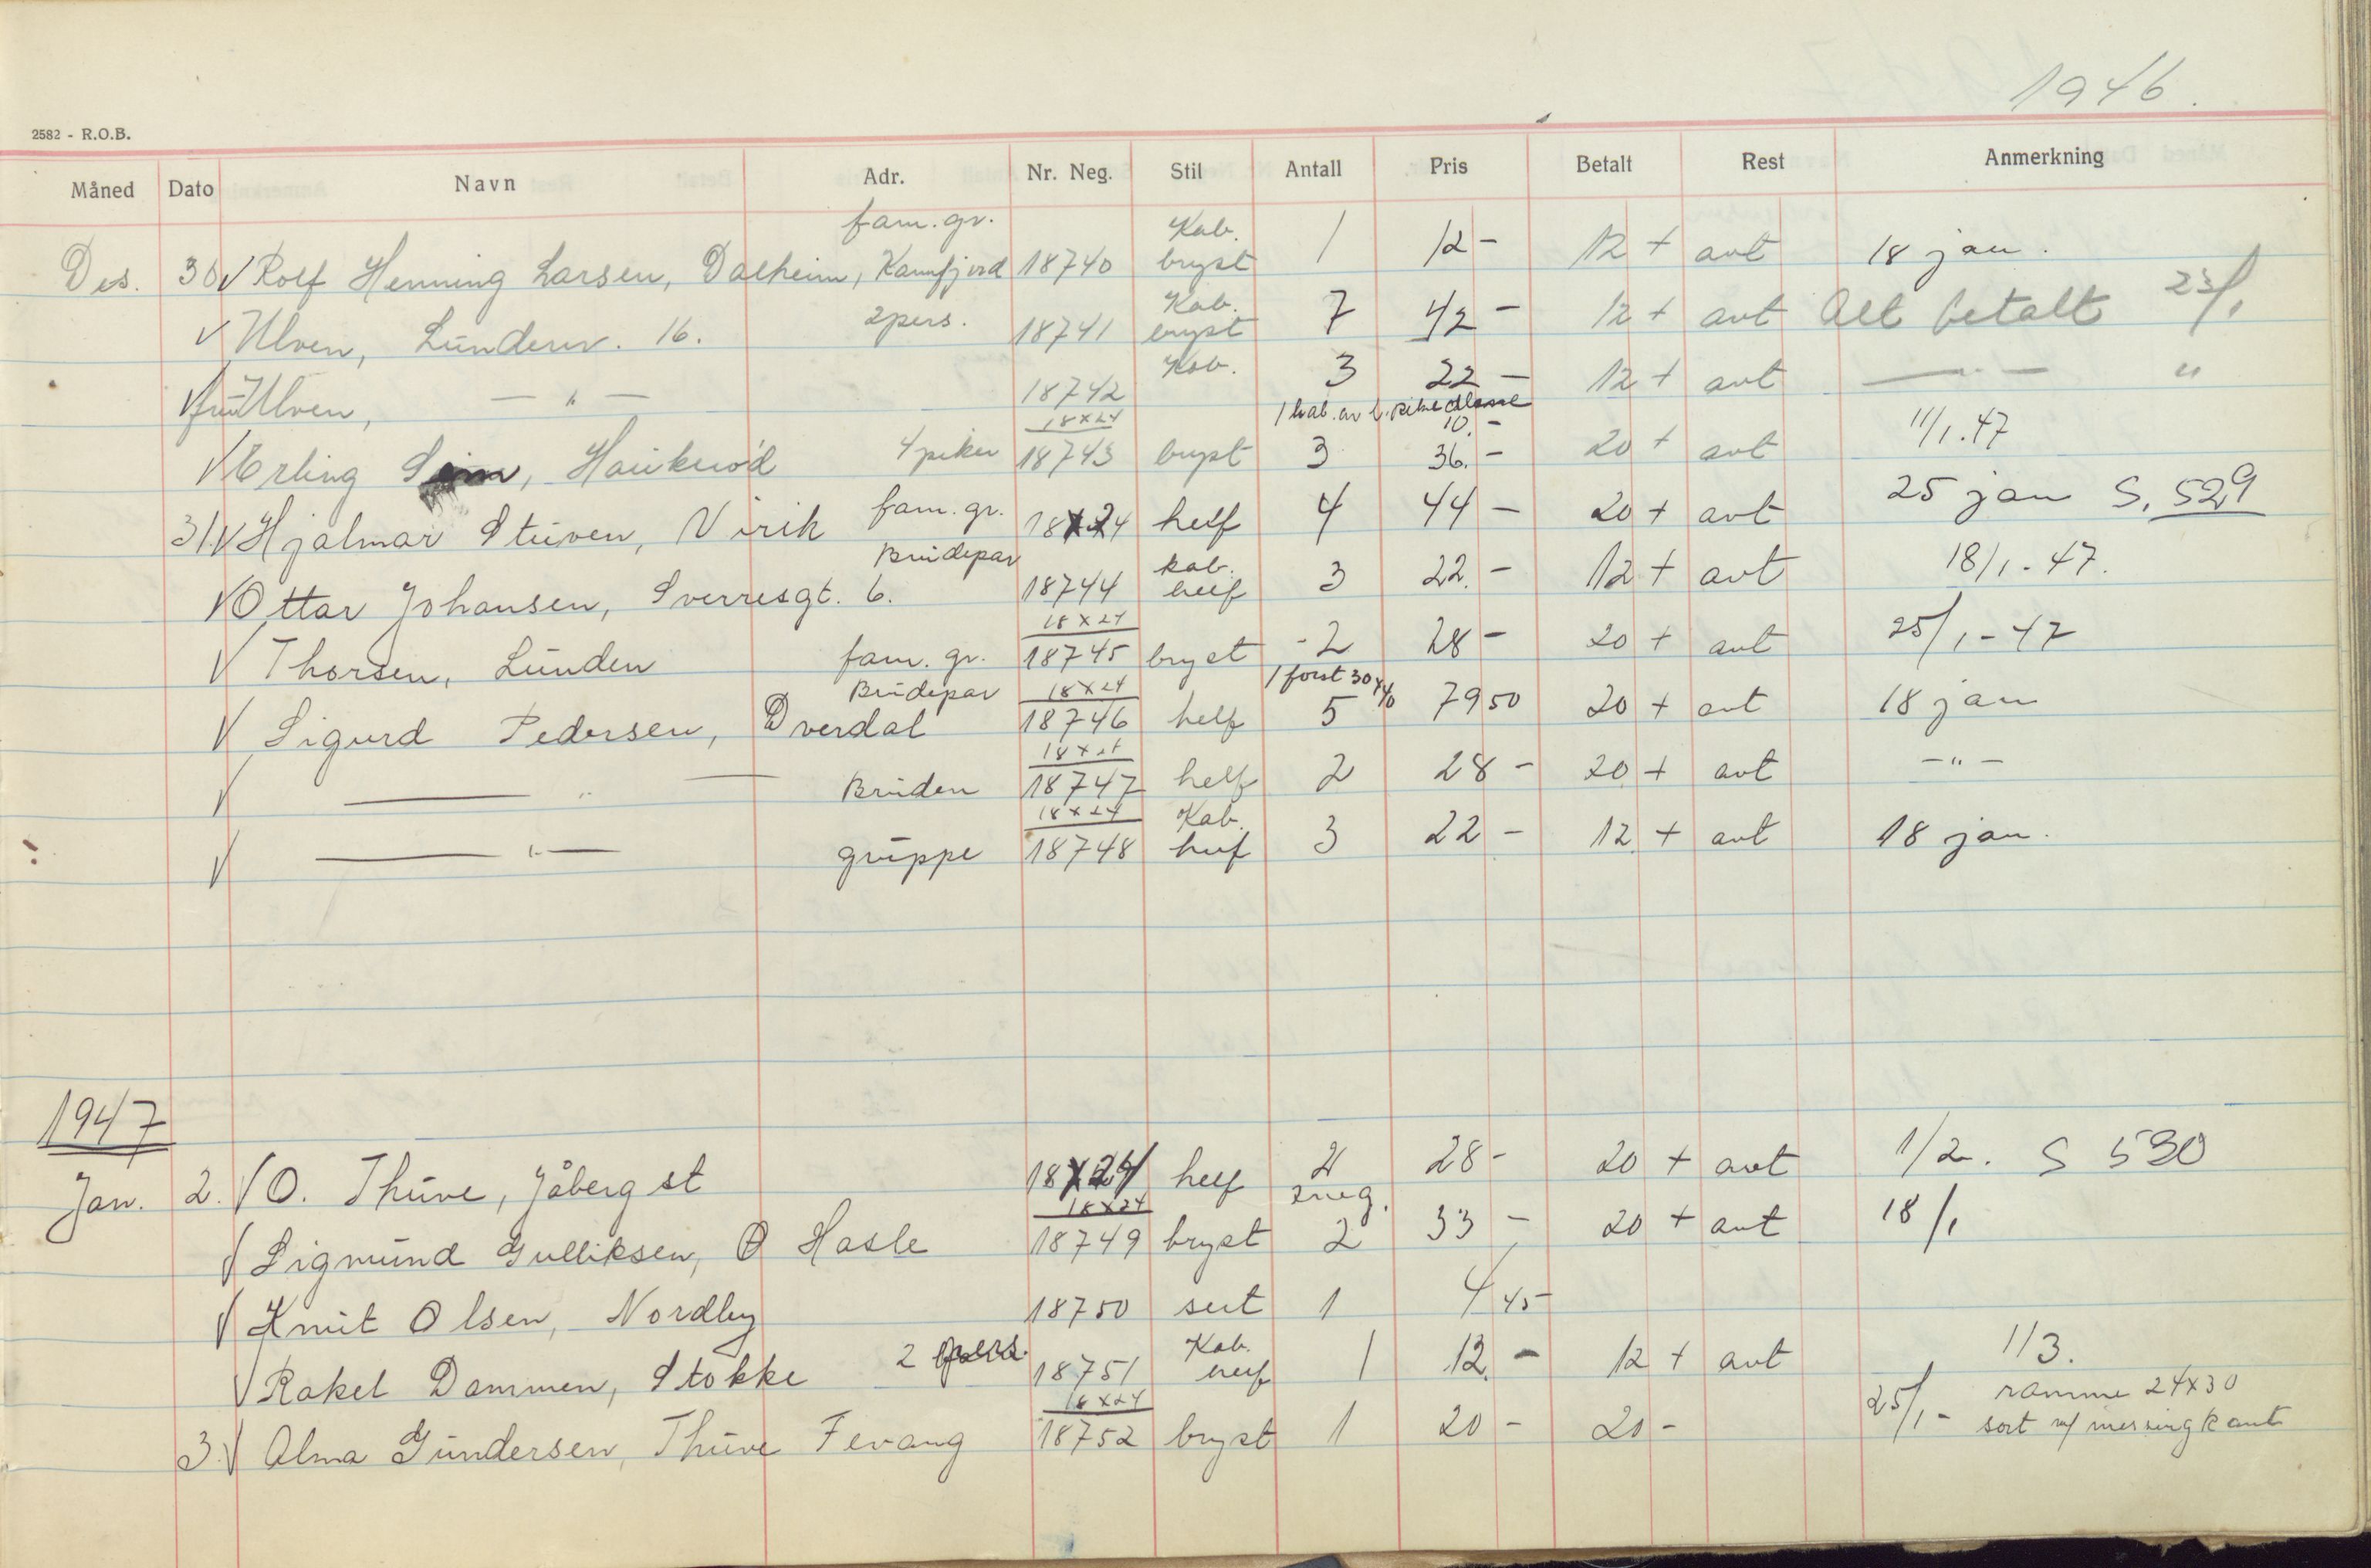 1946.
2582 - R.O.B.
Måned Dato Navn Adr. Nr. Neg. Stil Antall Pris Betalt Rest Anmerkning
fam. gr. Kab.
Des. 30 √ Rolf Henning Larsen, Dalheim, Kamfjord 18740 bryst 1 12 - 12 + avt 18 jan.
2 pers. Kab.
√ Ulven, Lunderv. 16. 18741 bryst 7 42 - 12 + avt Alt betalt 23/1
Kab.
√ fru Ulven, — " — 18742 3 22 — 12 + avt — " — "
18x24 1 kab. av 10. -
√ Erling, Haukerød 4 piker 18743 bryst 3 36. - 20 + avt 11/1. 47
31. √ Hjalmar Stuven, Virik fam. gr. 18x24 helf 4 44 - 20 + avt 25 jan S. 529
Brudepar kab.
√ Ottar Johansen, Sverresgt. 6. 18744 helf 3 22. - 12 + avt 18/1 - 47.
18x24
√ Thorsen, Lunden fam. gr. 18745 bryst - 2 28 - 20 + avt 25/1 - 47
Brudepar 18x24 1 forst 30x40
√ Sigurd Pedersen, Dverdal 18746 helf 5 79 50 20 + avt 18 jan
18x24
√ — " — Bruden 18747 helf 2 28 - 20 + avt - " -
18x24 Kab.
√ — " — gruppe 18748 helf 3 22 - 12. + avt 18 jan.
1947
Jan. 2. √ O. Thuve, Jåberg st 18x24 helf 2 28 - 20 + avt 1/2. S 530
18x24 2 neg.
√ Sigmund Gulliksen, Ø Hasle 18749 bryst 2 33 - 20 + avt 18/1
√ Knut Olsen, Nordby 18750 sert 1 4 45 -
2 pers. Kab.
√ Rakel Dammen, Stokke 18751 helf 1 12. - 12 + avt 1/3.
18x24 ramme 24x30
3. √ Alma Gundersen, Thuve Fevang 18752 bryst 1 20 - 20 - 25/1 - sort m/ messingkant